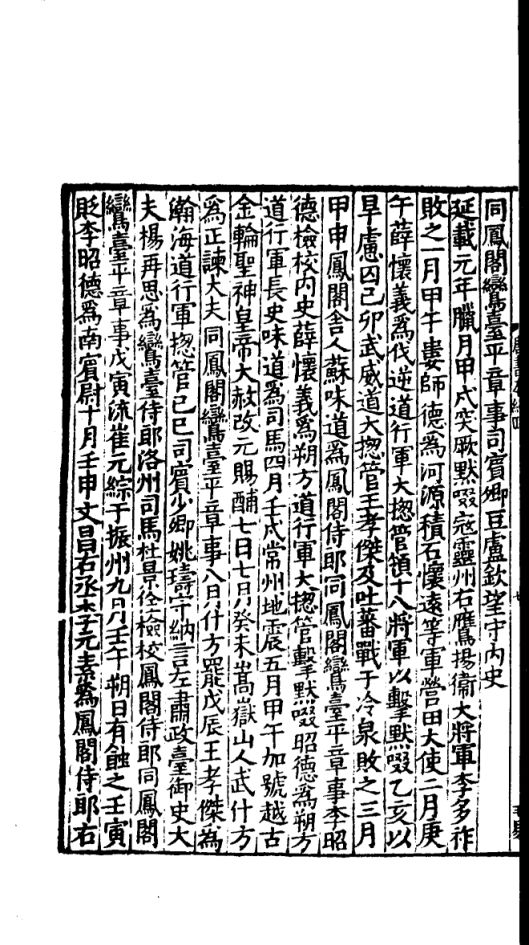 同鳳閣鸞臺平章事司賓卿豆盧欽望守内史
延載元年臘月甲戌突厥默啜寇靈州右鷹揚衛大將軍李多祚
敗之一月甲午婁師德爲河源積石懷遠等軍營田大使二月庚
午薛懷義爲伐逆道行軍大揔管領十八將軍以擊默啜乙亥以
旱慮囚己卯武威道大揔管王孝傑及吐蕃戰于冷泉敗之三月
甲申鳳閣舎人蘇味道爲鳳閣侍郎同鳳閣鸞臺平章事李昭
德檢校内史薛懷義爲朔方道行軍大揔管擊默啜昭德爲朔方
道行軍長史味道爲司馬四月壬戌常州地震五月甲午加號越古
金輪聖神皇帝大赦改元賜酺七日七月癸未嵩嶽山人武什方
爲正諫大夫同鳳閣鸞臺平章事八月什方罷戊辰王孝傑為
瀚海道行軍揔管己巳司賓少卿姚璹守納言左肅政臺御史大
夫楊再思爲鸞臺侍郎洛州司馬杜景佺檢校鳳閣侍郎同鳳閣
鸞臺平章事戊寅流崔元綜于振州九月壬午朔日有蝕之壬寅
貶李昭德爲南賓尉十月壬申文昌右丞李元素爲鳳閣侍郎右